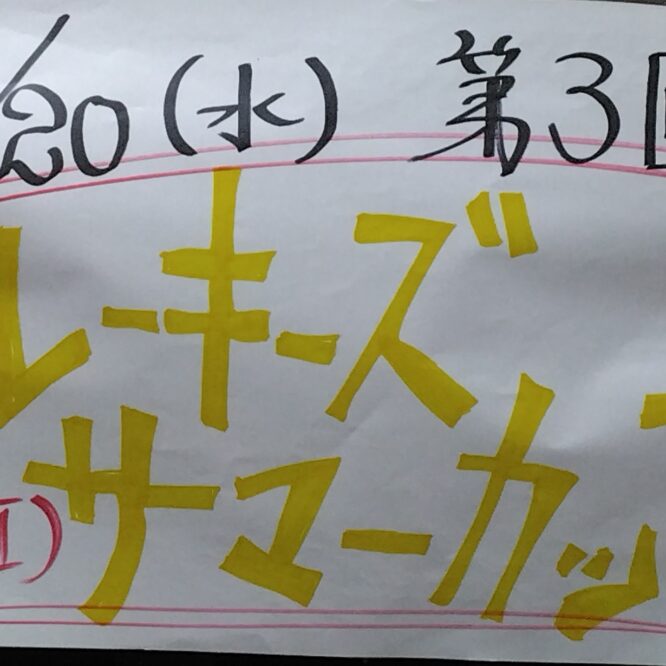 /20(水) 第3回
レーキーズ
I)サマーカッ